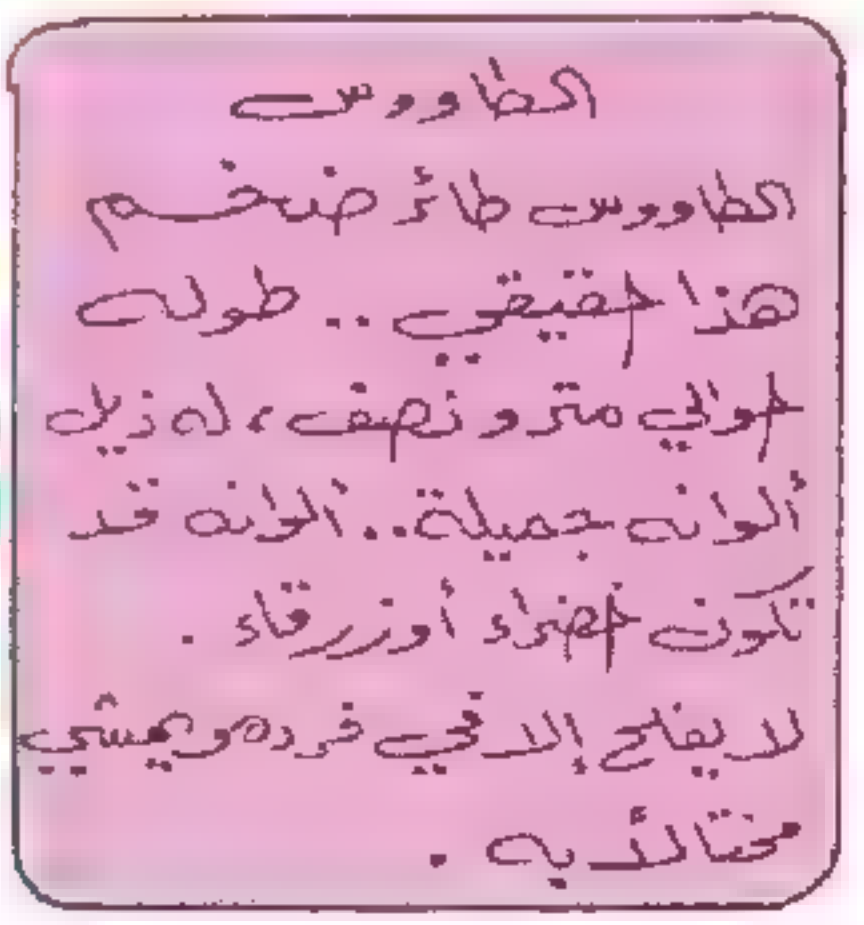 الطاووس
الطاووس طائر ضخم
هذا حقيقي .. طوله
حوالي متر و نصف ، له ذيل
ألوانه جميلة .. ألوانه قد
تكون خضراء أو زرقاء .
لا يفلح إلا في فرده و يمشي
مختالاً به .